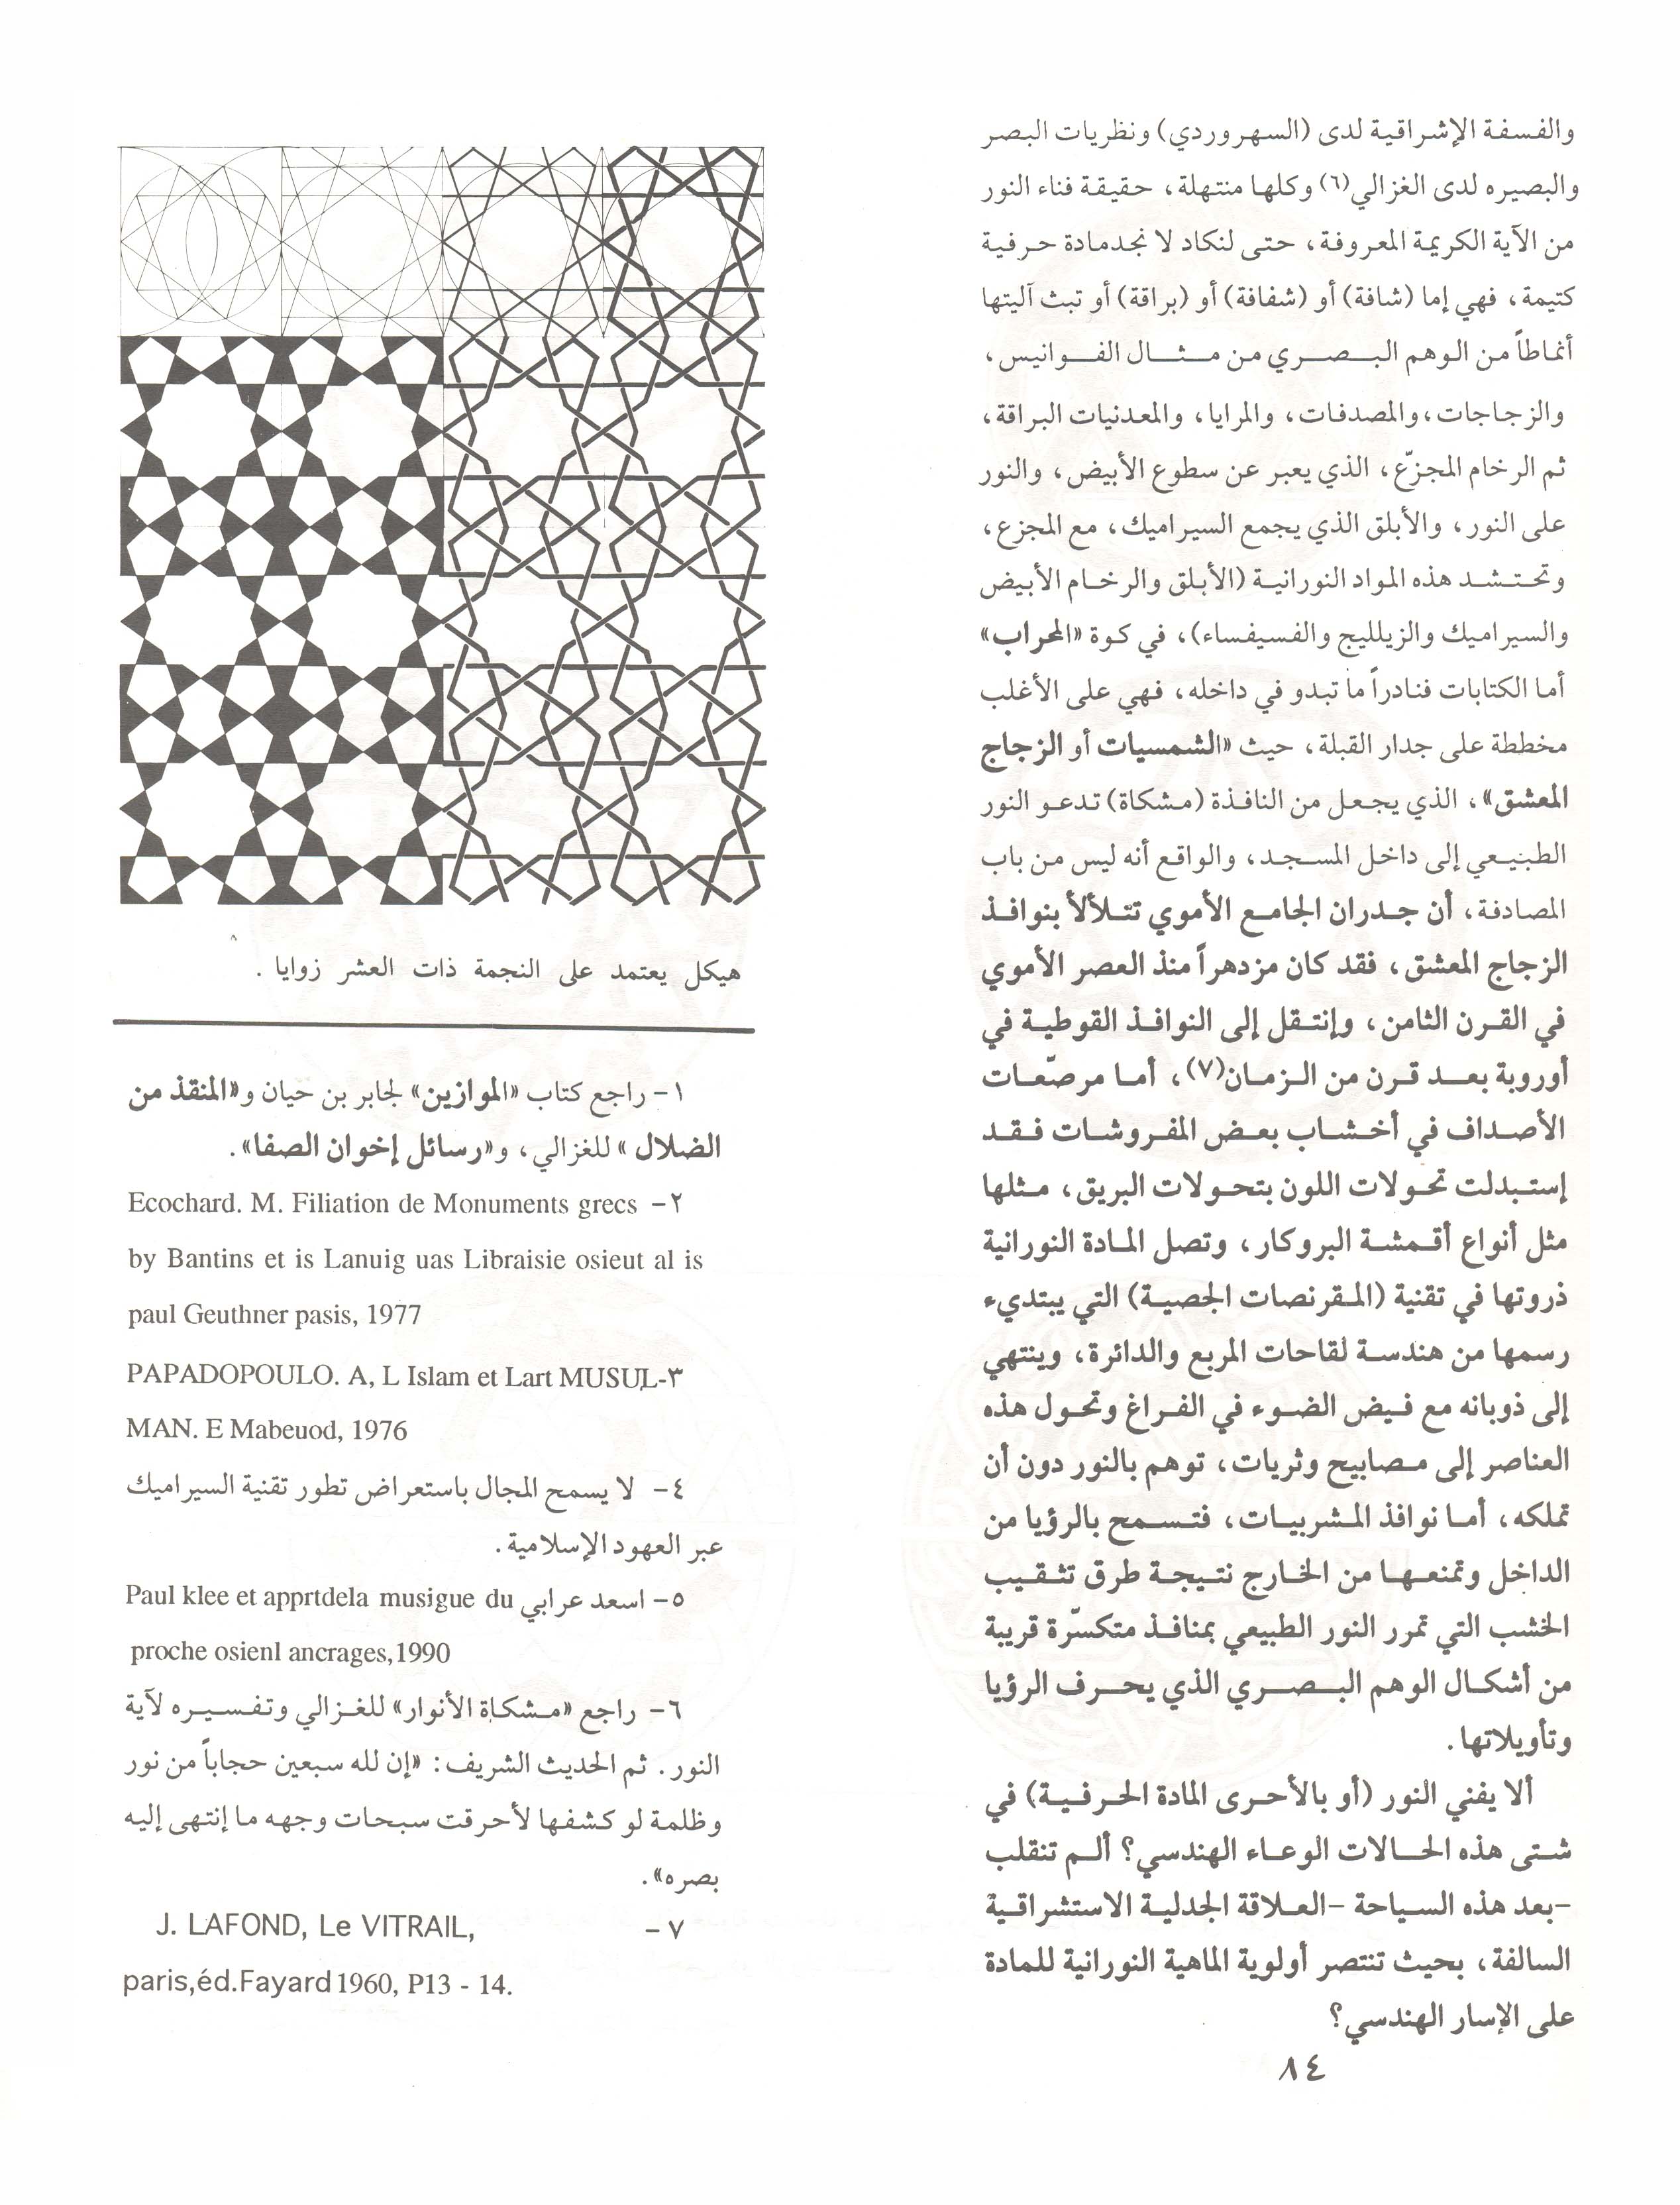 والفسفة الإشراقية لدى (السهروردي) ونظريات البصر
والبصيره لدى الغزالي(٦) وكلها منتهلة، حقيقة فناء النور
من الآية الكريمة المعروفة، حتى لنكاد لا نجدمادة حرفية
كتيمة، فهي إما (شافة) أو (شفافة) أو (براقة) أو تبث آليتها
أنماطاً من الوهم البصري من مثال الفوانيس،
والزجاجات،والمصدفات، والمرايا، والمعدنيات البراقة،
ثم الرخام المجزّع، الذي يعبر عن سطوع الأبيض، والنور
على النور، والأبلق الذي يجمع السيراميك، مع المجزع،
وتحتشد هذه المواد النورانية (الأبلق والرخام الأبيض
والسيراميك والزيلليج والفسيفساء)، في كوة «المحراب»
أما الكتابات فنادراً ما تبدو في داخله، فهي على الأغلب
مخططة على جدار القبلة، حيث «الشمسيات أو الزجاج
المعشق»، الذي يجعل من النافذة (مشكاة) تدعو النور
الطبيعي إلى داخل المسجد، والواقع أنه ليس من باب
المصادفة، أن جدران الجامع الأموي تتلألأ بنوافذ
الزجاج المعشق، فقد كان مزدهراً منذ العصر الأموي
في القرن الثامن، وإنتقل إلى النوافذ القوطية في
أوروبة بعد قرن من الزمان(٧)، أما مرصّعات
الأصداف في أخشاب بعض المفروشات فقد
إستبدلت تحولات اللون بتحولات البريق، مثلها
مثل أنواع أقمشة البروكار، وتصل المادة النورانية
ذروتها في تقنية (المقرنصات الجصية) التي يبتديء
رسمها من هندسة لقاحات المربع والدائرة، وينتهي
إلى ذوبانه مع فيض الضوء في الفراغ وتحول هذه
العناصر إلى مصابيح وثريات، توهم بالنور دون أن
تملكه، أما نوافذ المشربيات، فتسمح بالرؤيا من
الداخل وتمنعها من الخارج نتيجة طرق تثقيب
الخشب التي تمرر النور الطبيعي بمنافذ متكسّرة قريبة
من أشكال الوهم البصري الذي يحرف الرؤيا
وتأويلاتها.
ألا يفني النور (أو بالأحرى المادة الحرفية) في
شتى هذه الحالات الوعاء الهندسي؟ ألم تنقلب
-بعد هذه السياحة -العلاقة الجدلية الاستشراقية
السالفة، بحيث تنتصر أولوية الماهية النورانية للمادة
على الإسار الهندسي؟
هيكل يعتمد على النجمة ذات العشر زوايا .
١- راجع كتاب «الموازين» لجابر بن حيان و«المنقذ من
الضلال» للغزالي، و«رسائل إخوان الصفا».
٢- Ecochard. M. Filiation de Monuments grecs
by Bantins et is Lanuig uas Libraisie osieut al is
paul Geuthner pasis, 1977
٣-PAPADOPOULO. A, L Islam et Lart MUSUL
MAN. E Mabeuod, 1976
٤- لا يسمح المجال باستعراض تطور تقنية السيراميك
عبر العهود الإسلامية.
٥- اسعد عرابي Paul klee et apprtdela musigue du
proche osienl ancrages,1990
٦- راجع «مشكاة الأنوار» للغزالي وتفسيره لآية
النور. ثم الحديث الشريف: «إن لله سبعين حجاباً من نور
وظلمة لو كشفها لأحرقت سبحات وجهه ما إنتهى إليه
بصره».
٧- J. LAFOND, Le VITRAIL,
paris,éd.Fayard 1960, P13 - 14.
٨٤